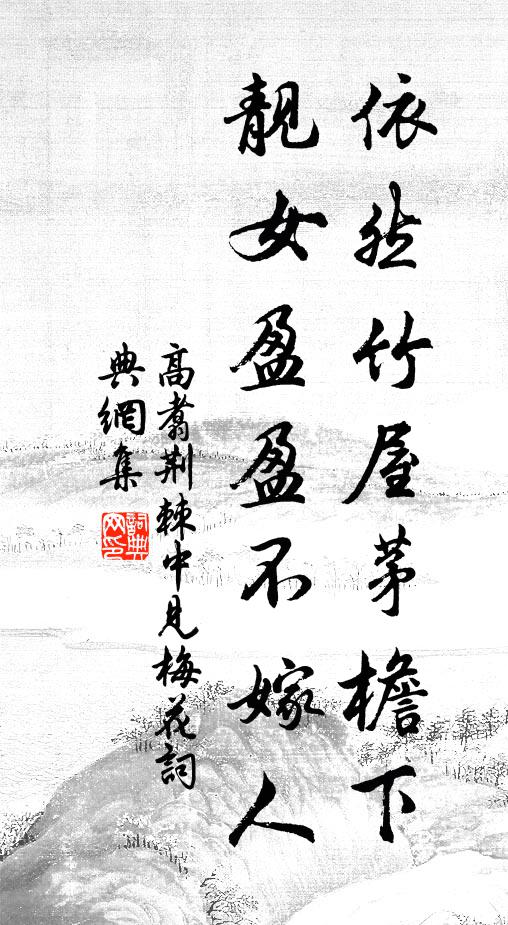 依然竹屋茅檐下
靓女盈盈不嫁人
高翥荆棘中見梅花詞
典網集
詞典网印